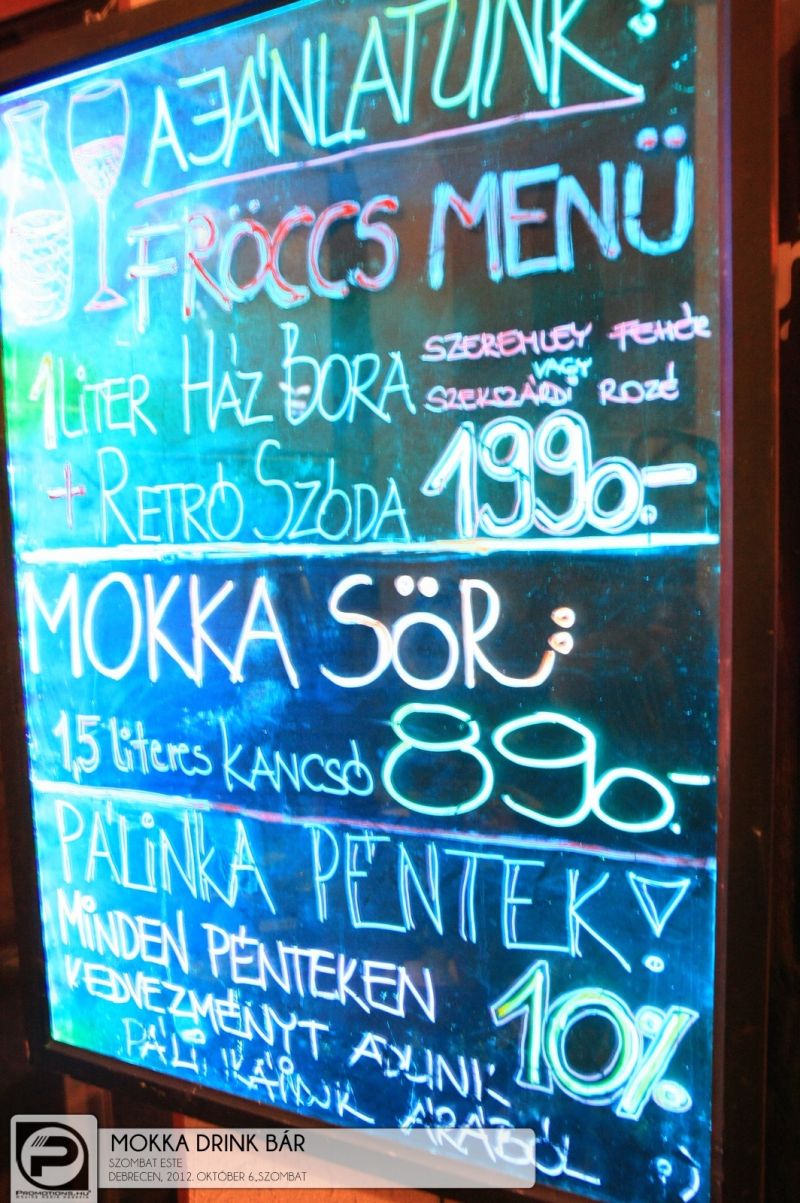 AJÁNLATUNK:
FRÖCCS MENÜ
1 LITER HÁZ BORA SZEREMLEY FEHÉR
VAGY
SZEKSZÁRDI ROZÉ
+ RETRÓ SZÓDA 1990.-
MOKKA SÖR:
1,5 literes KANCSÓ 890.-
PÁLINKA PÉNTEK!
MINDEN PÉNTEKEN
KEDVEZMÉNYT ADUNK 10%
PÁLINKÁINK ÁRÁBÓL :)
MOKKA DRINK BÁR
SZOMBAT ESTE
DEBRECEN, 2012. OKTÓBER 6.,SZOMBAT
PROMOTIONS.HU